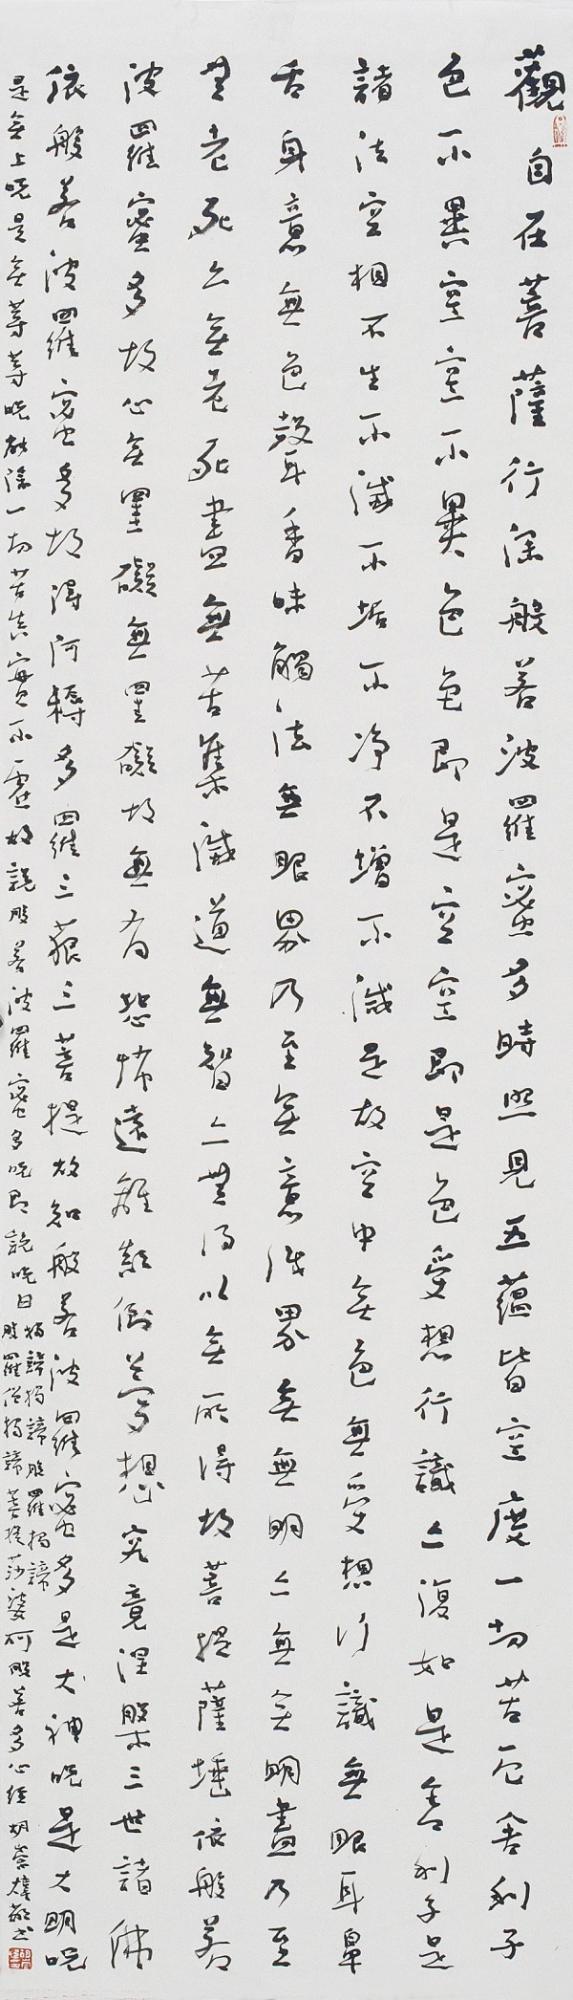 觀自在菩薩行深般若波羅蜜多時照見五蘊皆空度一切苦厄舍利子
色不異空空不異色色即是空空即是色受想行識亦復如是舍利子是
諸法空相不生不滅不垢不净不增不減是故空中無色無受想行識無眼耳鼻
舌身意無色聲香味觸法無眼界乃至無意識界無無明亦無無明盡乃至
無老死亦無老死盡無苦集滅道無智亦無得以無所得故菩提薩埵依般若
波羅蜜多故心無罣礙無罣礙故無有恐怖遠離顛倒夢想究竟涅槃三世諸佛
依般若波羅蜜多故得阿耨多羅三藐三菩提故知般若波羅蜜多是大神咒是大明咒
是無上咒是無等等咒能除一切苦真實不虛故說般若波羅蜜多咒即說咒曰
揭諦揭諦般羅揭諦
般羅僧揭諦菩提莎婆訶般若多心經胡崇雄敬书